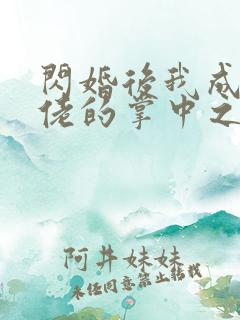 閃婚後我成
佬的掌中之
阿井妹妹
未经同意禁止转载